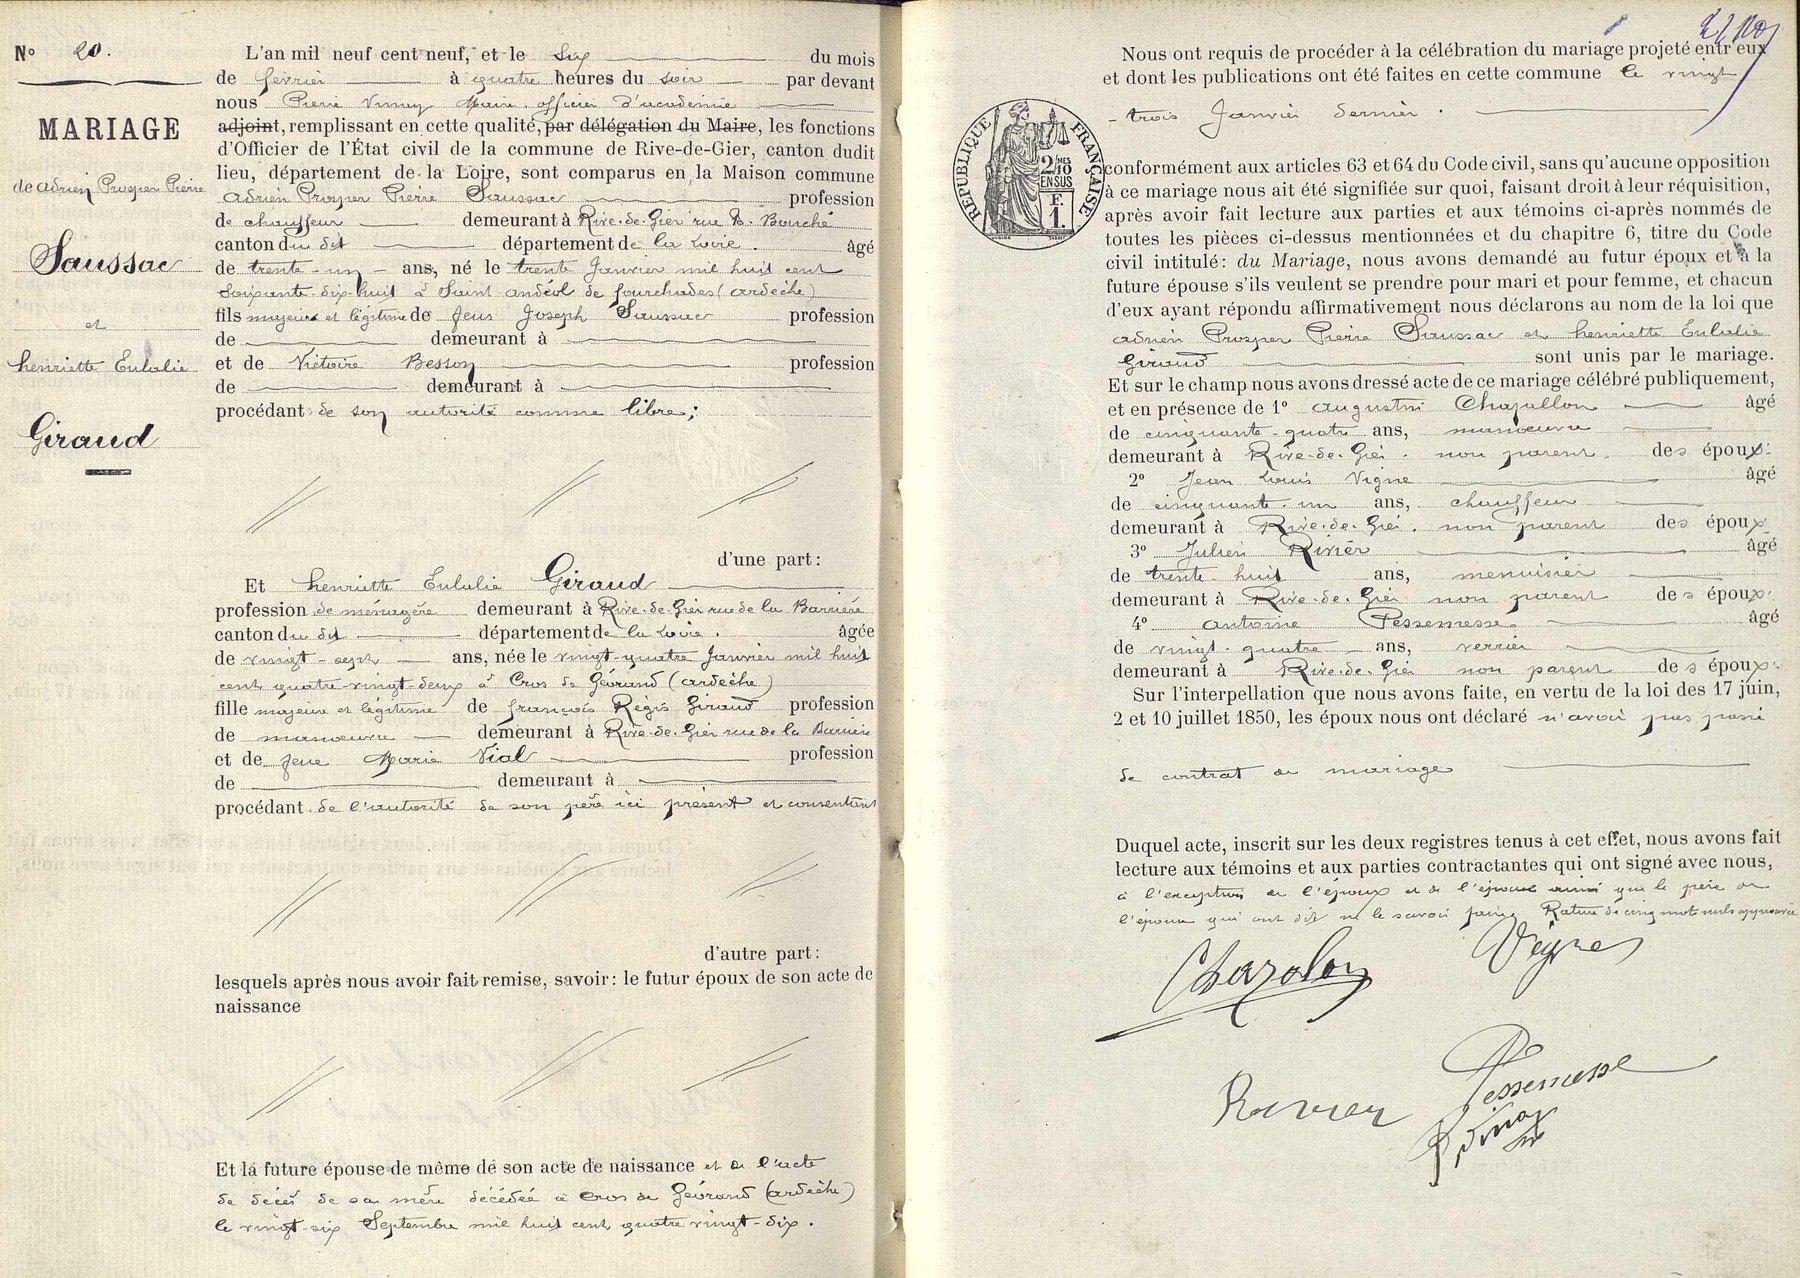 N° 20.
MARIAGE
de Adrien Prosper Pierre
Saussac
et
henriette Eulalie
Giraud
L'an mil neuf cent neuf, et le six du mois
de février à quatre heures du soir par devant
nous Pierre Vinay Maire officier d'académie
adjoint, remplissant en cette qualité, par délégation du Maire, les fonctions
d'Officier de l'État civil de la commune de Rive-de-Gier, canton dudit
lieu, département de la Loire, sont comparus en la Maison commune
Adrien Prosper Pierre Saussac profession
de chauffeur demeurant à Rive-de-Gier rue D. Bouché
canton du dit département de la Loire. âgé
de trente-un ans, né le trente Janvier mil huit cent
soixante-dix-huit à Saint andéol de fourchades (ardèche)
fils majeur et légitime de feus Joseph Saussac profession
de demeurant à
et de Victoire Besson profession
de demeurant à
procédant de son autorité comme libre;
d'une part :
Et henriette Eulalie Giraud
profession de ménagère demeurant à Rive-de-Gier rue de la Barrière
canton du dit département de la Loire. âgée
de vingt-sept ans, née le vingt-quatre Janvier mil huit
cent quatre-vingt-deux à Cros de Géorand (ardèche)
fille majeure et légitime de françois Régis Giraud profession
de manœuvre demeurant à Rive-de-Gier rue de la Barrière
et de feue Marie Vial profession
de demeurant à
procédant de l'autorité de son père ici présent et consentant
d'autre part :
lesquels après nous avoir fait remise, savoir : le futur époux de son acte de
naissance
Et la future épouse de même de son acte de naissance et de l'acte
de décès de sa mère décédée à Cros de Géorand (ardèche)
le vingt-six Septembre mil huit cent quatre vingt-dix.
Nous ont requis de procéder à la célébration du mariage projeté entr'eux
et dont les publications ont été faites en cette commune le vingt
-trois Janvier dernier.
RÉPUBLIQUE FRANÇAISE
2/10MES
EN SUS
F.
1.
conformément aux articles 63 et 64 du Code civil, sans qu'aucune opposition
à ce mariage nous ait été signifiée sur quoi, faisant droit à leur réquisition,
après avoir fait lecture aux parties et aux témoins ci-après nommés de
toutes les pièces ci-dessus mentionnées et du chapitre 6, titre du Code
civil intitulé : du Mariage, nous avons demandé au futur époux et à la
future épouse s'ils veulent se prendre pour mari et pour femme, et chacun
d'eux ayant répondu affirmativement nous déclarons au nom de la loi que
Adrien Prosper Pierre Saussac et henriette Eulalie
Giraud sont unis par le mariage.
Et sur le champ nous avons dressé acte de ce mariage célébré publiquement,
et en présence de 1° augustin Chazallon âgé
de cinquante-quatre ans, manœuvre
demeurant à Rive-de-Gier. non parent des époux.
2° Jean Louis Vigne âgé
de cinquante-un ans, chauffeur
demeurant à Rive-de-Gier. non parent des époux
3° Julien Rivier âgé
de trente-huit ans, menuisier
demeurant à Rive-de-Gier non parent des époux.
4° antoine Pessemesse âgé
de vingt-quatre ans, verrier
demeurant à Rive-de-Gier non parent des époux.
Sur l'interpellation que nous avons faite, en vertu de la loi des 17 juin,
2 et 10 juillet 1850, les époux nous ont déclaré n'avoir pas passé
de contrat de mariage
Duquel acte, inscrit sur les deux registres tenus à cet effet, nous avons fait
lecture aux témoins et aux parties contractantes qui ont signé avec nous,
à l'exception de l'époux et de l'épouse ainsi que le père de
l'épouse qui ont dit ne le savoir faire. Rature de cinq mots nuls approuvée
Chazalon Vignes
Rivier Pessemesse
Vinay